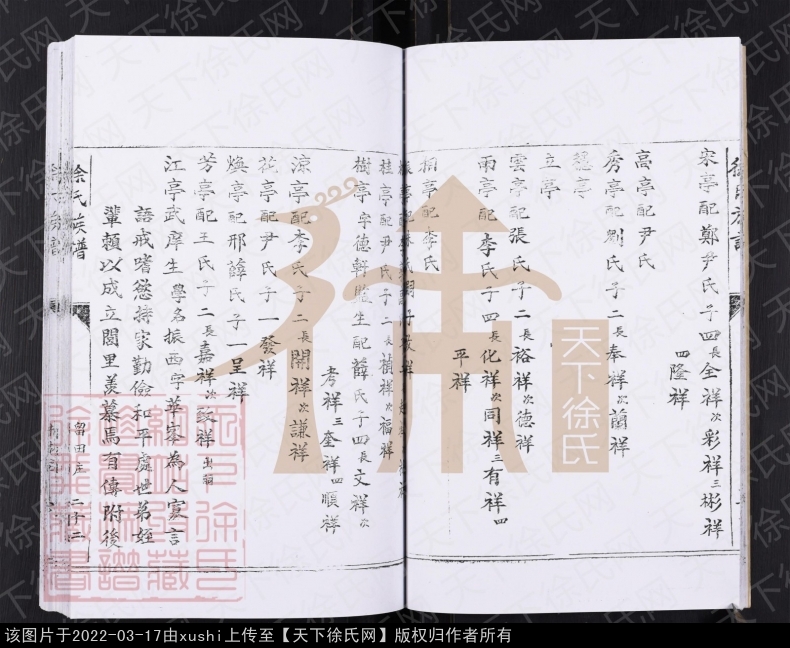 宋亭配鄭尹氏子四長全祥次彩祥三彬祥
四隆祥
高亭配尹氏
秀亭配劉氏子二長奉祥次蘭祥
立亭
雲亭配張氏子二長裕祥次德祥
雨亭配李氏子四長化祥次同祥三有祥四
平祥
柏亭配李氏
桂亭配尹氏子二長楨祥次福祥
樹亭字德軒監生配薛氏子四長文祥次
考祥三奎祥四順祥
涼亭配李氏子二長開祥次謙祥
花亭配尹氏子一發祥
煥亭配邢薛氏子一呈祥
芳亭配王氏子二長嘉祥次致祥出嗣
江亭武庠生學名振西字華峯為人寡言
語戒嗜慾持家勤儉和平處世弟姪
輩賴以成立閭里羨慕焉有傳附後
徐氏族譜
留田庄
二十二
天下徐氏
天下徐氏网
该图片于2022-03-17由xushi上传至【天下徐氏网】版权归作者所有